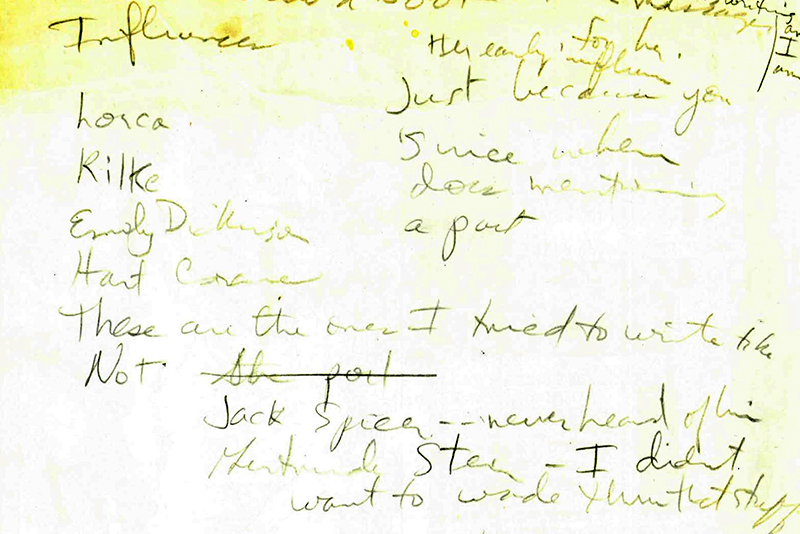 Influences
Her early, for her.
Just because you
since when
does mentioning
a poet
Lorca.
Rilke
Emily Dickinson
Hart Crane
These are the ones I tried to write like
Not. She poet
Jack Spicer -- never heard of him
Gertrude Stein - I didn't
want to wade thru that stuff